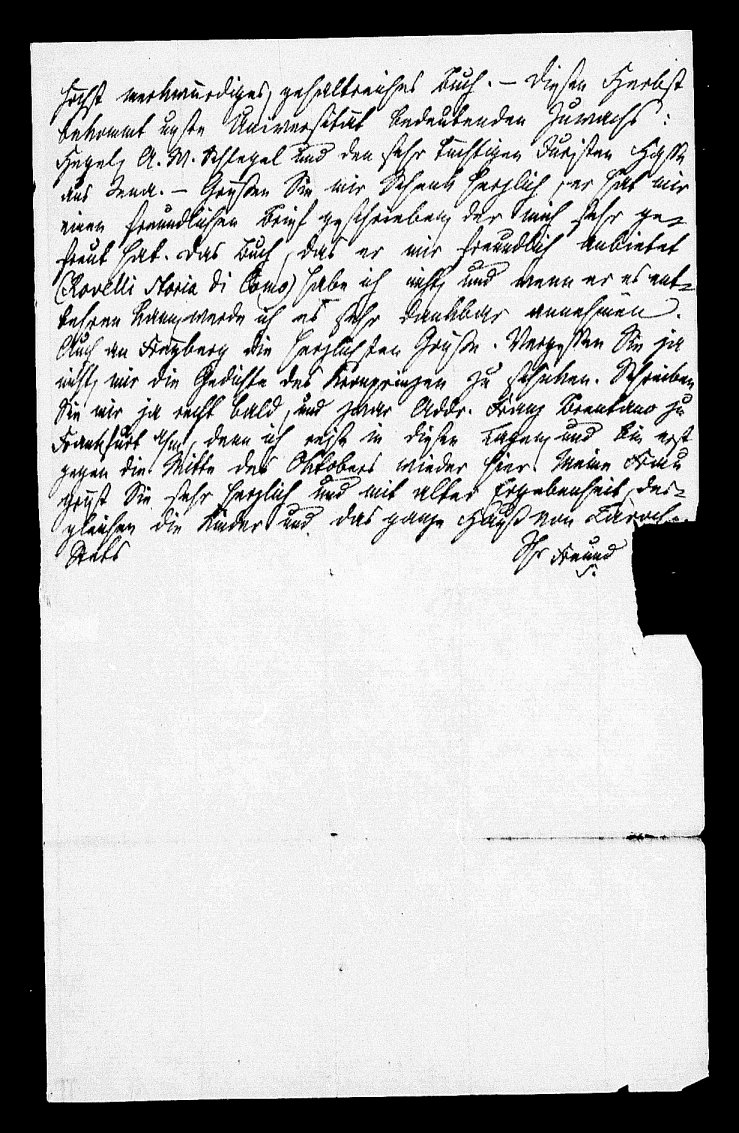 höchst merkwürdiges, gehaltreiches Buch. – Diesen Herbst
bekommt unsre Universität bedeutenden Zuwachs:
Hegel, A. W. Schlegel und den sehr tüchtigen Juristen Hasse
aus Jena. – Grüßen Sie mir Schenk herzlich, er hat mir
einen freundlichen Brief geschrieben, der mich sehr ge-
freut hat. Das Buch, das er mir freundlich anbietet
(Rovelli storia di Como) habe ich nicht, und wenn er es ent-
behren kann, werde ich es sehr dankbar annehmen.
Auch an Freyberg die herzlichsten Grüße. Vergessen Sie ja
nicht, mir die Gedichte des Kronprinzen zu schicken. Schreiben
Sie mir ja recht bald, und zwar Addr. Franz Brentano zu
Frankfurt a/m, denn ich reise in diesen Tagen, und bin erst
gegen die Mitte des Oktobers wieder hier. Meine Frau
grüßt Sie sehr herzlich und mit alter Ergebenheit, des-
gleichen die Kinder und das ganze Hauß von
Stets Ihr Freund
S.